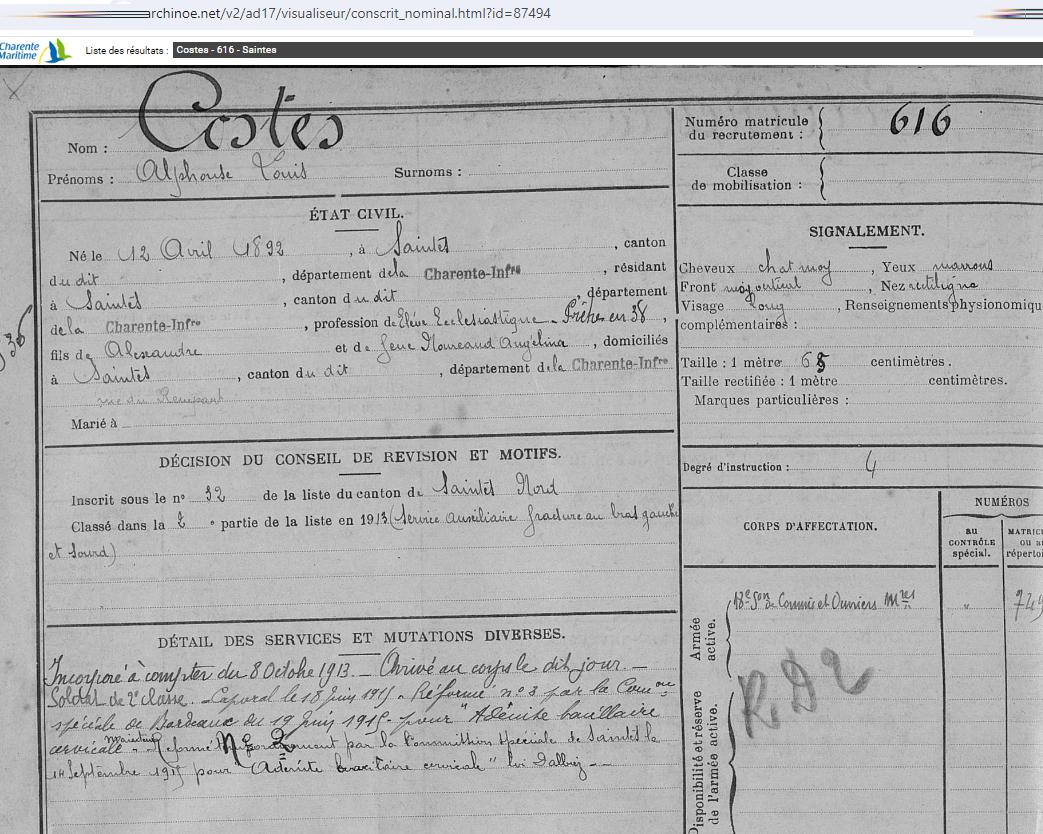 archinoe.net/v2/ad17/visualiseur/conscrit_nominal.html?id=87494
Charente Maritime
Liste des résultats : Costes - 616 - Saintes
Nom : Costes
Prénoms : Alphonse Louis Surnoms :
Numéro matricule du recrutement : 616
Classe de mobilisation :
ÉTAT CIVIL.
Né le 12 Avril 1892, à Saintes, canton
du dit, département de la Charente-Infre, résidant
à Saintes, canton du dit, département
de la Charente-Infre, profession de Elève Ecclesiastique - Prêtre en 38,
fils de Alexandre et de Angelina, domiciliés
à Saintes, canton du dit, département de la Charente-Infre
rue du Rempart
Marié à
36
SIGNALEMENT.
Cheveux chat moy, Yeux marrons
Front moy vertical, Nez rectiligne
Visage long, Renseignements physionomiqu
complémentaires :
Taille : 1 mètre 68 centimètres.
Taille rectifiée : 1 mètre centimètres.
Marques particulières :
Degré d'instruction : 4
DÉCISION DU CONSEIL DE REVISION ET MOTIFS.
Inscrit sous le n° 32 de la liste du canton de Saintes Nord
Classé dans la 2e partie de la liste en 1913 (Service auxiliaire fracture au bras gauche
et sourd)
CORPS D'AFFECTATION.
NUMÉROS
au CONTRÔLE spécial.
MATRIC ou au répertoi
Armée active.
18e Son de Commis et Ouvriers Mres " 749
Disponibilité et réserve de l'armée active.
R.D2
DÉTAIL DES SERVICES ET MUTATIONS DIVERSES.
Incorporé à compter du 8 Octobre 1913. - Arrivé au corps le dit jour. -
Soldat de 2e classe. - Caporal le 18 Juin 1915 - Réformé n° 3 par la Comon
spéciale de Bordeaux du 19 Juin 1915 - pour "Adénite bacillaire
cervicale" - maintenu Réformé N° 2 par la Commission spéciale de Saintes le
14 Septembre 1915 pour "Adénite bacillaire cervicale"